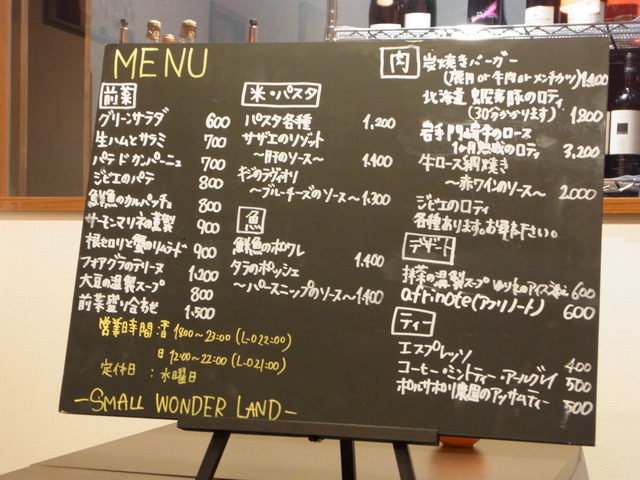 MENU
前菜
グリーンサラダ 600
生ハムとサラミ 700
パテドカンパーニュ 700
ジビエのパテ 800
鮮魚のカルパッチョ 800
サーモンマリネの燻製 900
根セロリと蟹のリムラード 900
フォアグラのテリーヌ 1,200
大豆の温製スープ 800
前菜盛り合わせ 1,500
営業時間: 18:00〜23:00 (L.O 22:00)
日 12:00〜22:00 (L.O 21:00)
定休日 : 水曜日
-SMALL WONDER LAND-
米・パスタ
パスタ各種 1,200
サザエのリゾット
〜肝のソース〜 1,400
キジのラヴィオリ
〜ブルーチーズのソース〜 1,300
魚
鮮魚のポワレ 1,400
タラのポッシェ
〜パースニップのソース〜 1,400
肉
炭焼きバーガー
(鹿肉or牛肉orメンチカツ) 1,400
北海道 蝦夷豚のロティ
(30分かかります) 1800
岩手門崎牛のロース
1ヶ月熟成のロティ 3,200
牛ロース網焼き
〜赤ワインのソース〜 2,000
ジビエのロティ
各種あります。お尋ね下さい。
デザート
抹茶の温製スープ ゆり根のアイス添え 600
afrinote(アフリノート) 600
ティー
エスプレッソ 400
コーヒー・ミントティー・アールグレイ 500
ボルサポリ農園のアッサムティー 500